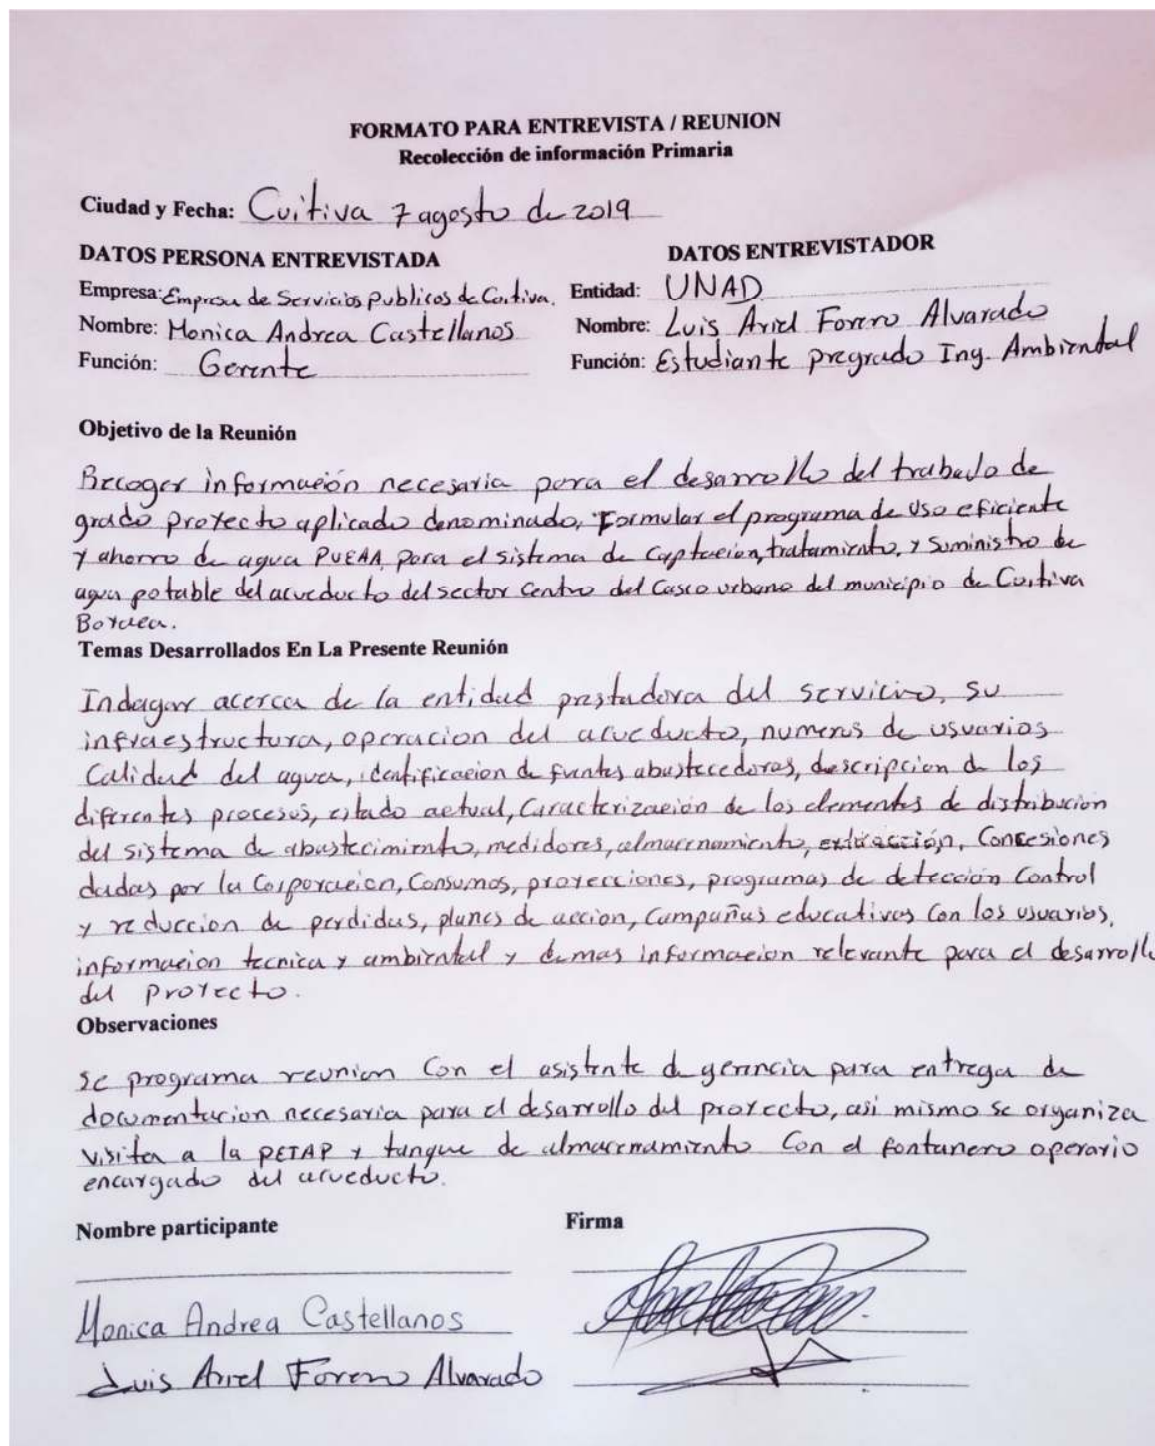 FORMATO PARA ENTREVISTA / REUNION
Recolección de información Primaria
Ciudad y Fecha: Cuitiva 7 agosto de 2019
DATOS PERSONA ENTREVISTADA DATOS ENTREVISTADOR
Empresa: Empresa de Servicios Publicos de Cuitiva. Entidad: UNAD
Nombre: Monica Andrea Castellanos Nombre: Luis Ariel Forero Alvarado
Función: Gerente Función: Estudiante pregrado Ing. Ambiental
Objetivo de la Reunión
Recoger información necesaria para el desarrollo del trabado de
grado proyecto aplicado denominado, Formular el programa de uso eficiente
y ahorro de agua PUEAA para el sistema de Captacion, tratamiento, y Suministro de
agua potable del acueducto del sector Centro del Casco urbano del municipio de Cuitiva
Boyaca.
Temas Desarrollados En La Presente Reunión
Indagar acerca de la entidad prestadora del servicio, su
infraestructura, operacion del acueducto, numeros de usuarios
Calidad del agua, identificacion de fuentes abastecedoras, descripcion de los
diferentes procesos, estado actual, Caracterización de los elementos de distribucion
del sistema de abastecimiento, medidores, almacenamiento, extracción, Concesiones
dadas por la Corporacion, Consumos, proyecciones, programas de detección Control
y reduccion de perdidas, planes de accion, Campañas educativas Con los usuarios,
informacion tecnica y ambiental y demas informacion relevante para el desarrollo
del proyecto.
Observaciones
Se programa reunion Con el asistente de gerencia para entrega de
documentacion necesaria para el desarrollo del proyecto, asi mismo se organiza
visita a la PETAP y tanque de almacenamiento Con el fontanero operario
encargado del acueducto.
Nombre participante Firma
Monica Andrea Castellanos
Luis Ariel Forero Alvarado